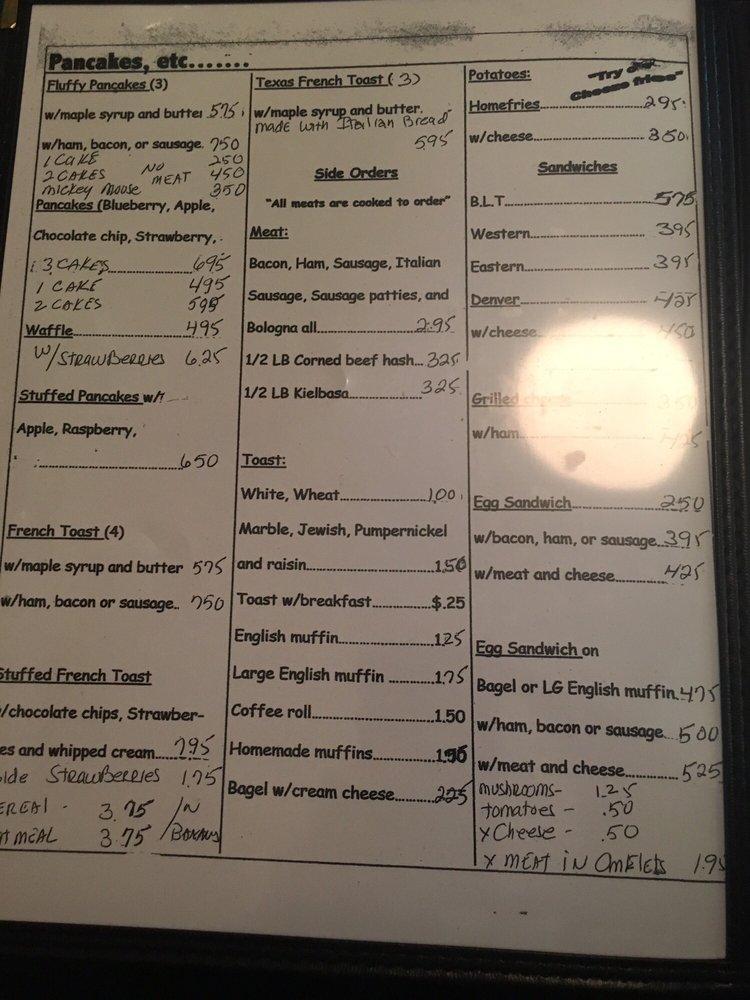 Pancakes, etc.......
Fluffy Pancakes (3)
w/maple syrup and butter 575
w/ham, bacon, or sausage. 750
1 CAKE 250
2 CAKES NO MEAT 450
mickey mouse 350
Pancakes (Blueberry, Apple,
Chocolate chip, Strawberry,
3 CAKES 695
1 CAKE 495
2 CAKES 595
Waffle 495
W/STRAWBERRIES 6.25
Stuffed Pancakes w/
Apple, Raspberry,
650
French Toast (4)
w/maple syrup and butter 575
w/ham, bacon or sausage.. 750
Stuffed French Toast
/chocolate chips, Strawber-
es and whipped cream 795
ide STRAWBERRIES 1.75
EREAL - 3.75
MEAL 3.75
IN
Texas French Toast (3)
w/maple syrup and butter.
made with Italian Bread
595
Side Orders
"All meats are cooked to order"
Meat:
Bacon, Ham, Sausage, Italian
Sausage, Sausage patties, and
Bologna all 2.95
1/2 LB Corned beef hash... 325
1/2 LB Kielbasa 325
Toast:
White, Wheat 1.00
Marble, Jewish, Pumpernickel
and raisin 1.50
Toast w/breakfast $.25
English muffin 125
Large English muffin 1.75
Coffee roll 1.50
Homemade muffins
Bagel w/cream cheese 225
Potatoes:
"Try our
Cheese fries"
Homefries 295
w/cheese 350
Sandwiches
B.L.T. 575
Western 395
Eastern 395
Denver 425
w/cheese 450
Grilled cheese 350
w/ham 425
Egg Sandwich 250
w/bacon, ham, or sausage 395
w/meat and cheese 425
Egg Sandwich on
Bagel or LG English muffin. 475
w/ham, bacon or sausage 500
w/meat and cheese 525
mushrooms- 1.25
tomatoes - .50
x Cheese - .50
x MEAT iN OmElEts 1.95